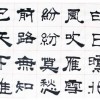 白日曛北
風吹雁雪
紛紛莫愁
前路無知
己天下誰